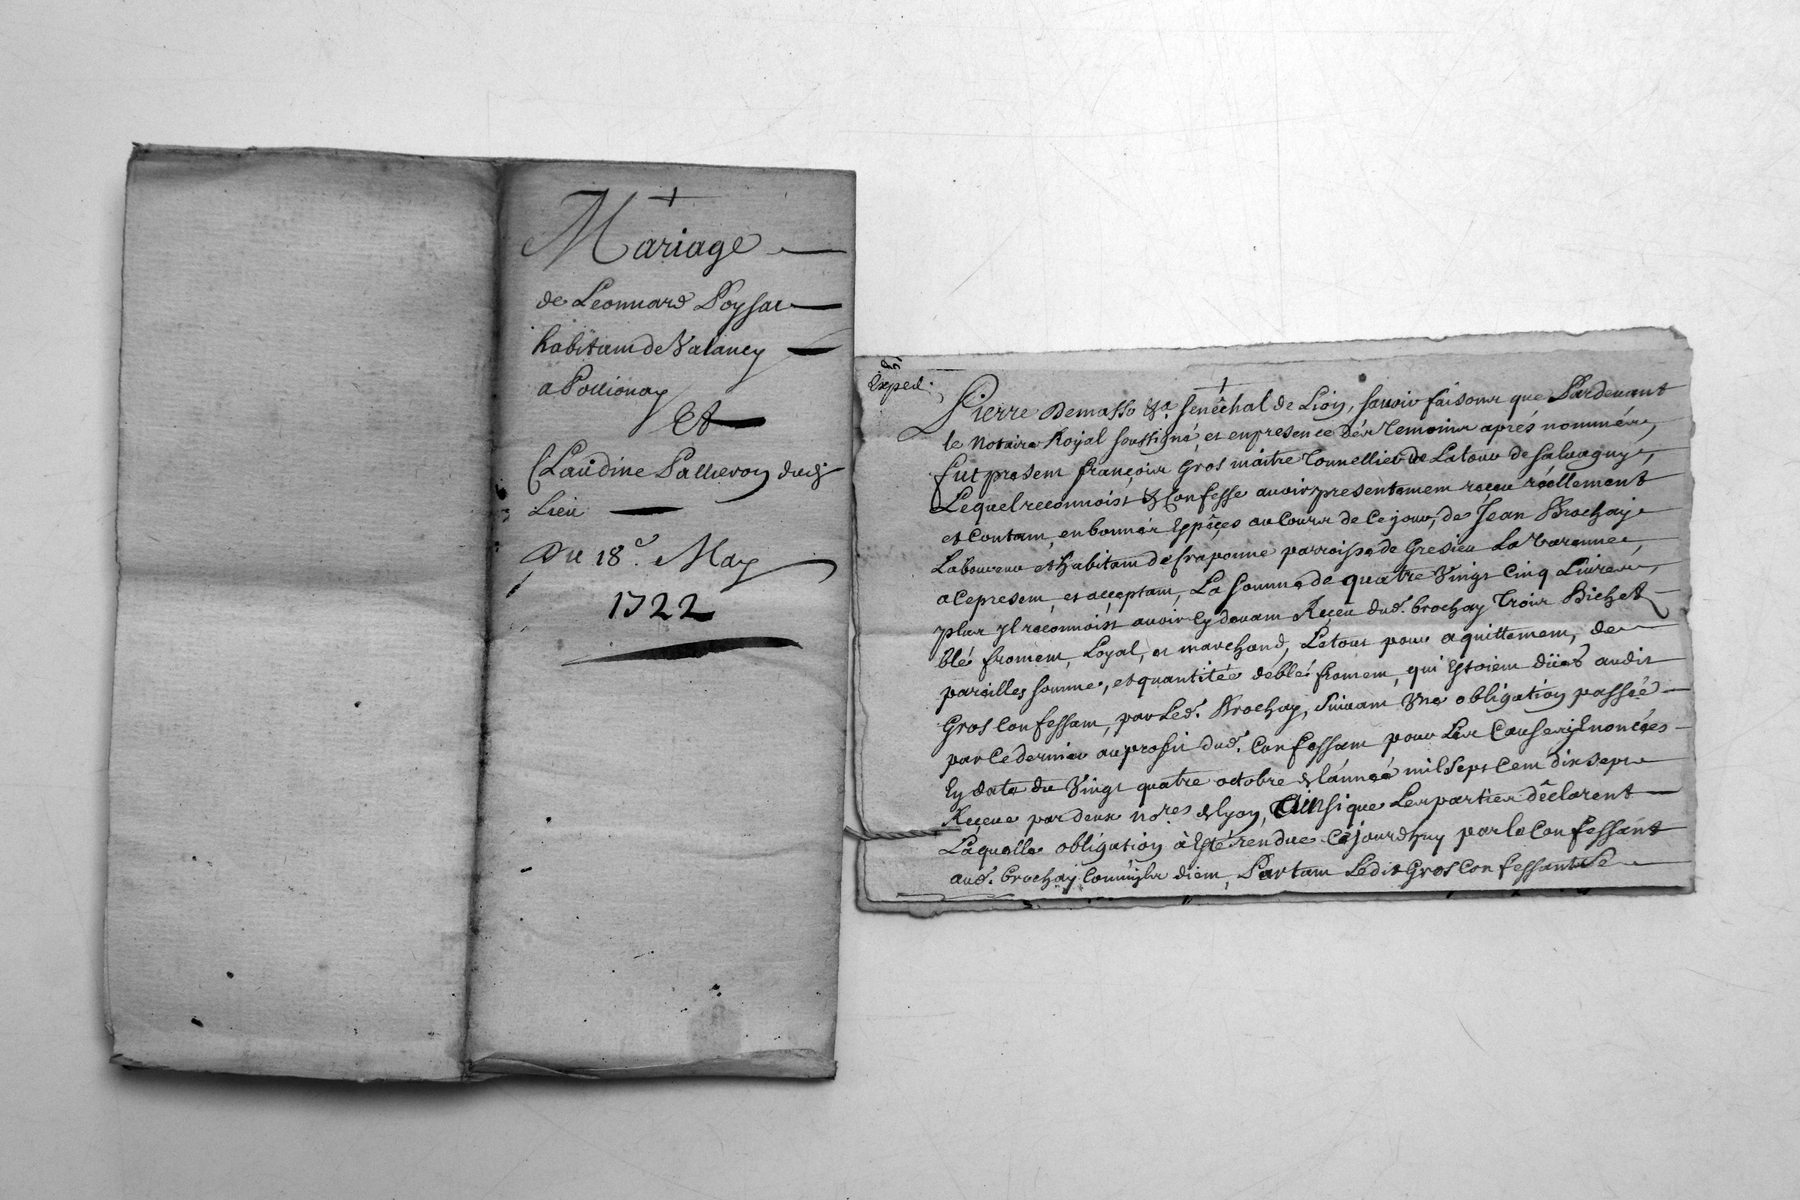 Mariage
de Leonnard Poysat
habitam de Valancy
a Pollionay
Et
Claudine Pallieron dudt
Lieu
Du 18e. May
1722
Exped.
Pierre Demasso &a senêchal de Lion, savoir faisons que Pardevant
le Notaire Royal soussigné, et en presence des Temoins aprés nommés,
fut presem françois Gros maitre Tonnellier de Latour de salvagny,
Lequel reconnoist & Confesse avoir presentemem reçeu réellement
et Contam, en bonnes Espêçes au Cours de Ce jour, de Jean Brochay
Laboureur et habitam de fraponne parroisse de Gresieu La Varenne,
a Ce presem, et acceptam, La somme de quatre Vingt Cinq Livres,
plus yl reconnoist avoir Cy devam Reçeu dud. brochay Trois Bichet
blé fromem, Loyal, et marchand, Letout pour aquittemem, de
pareilles somme, et quantitée de blé fromem, qui Estoiem düet audit
Gros Confessam, par Led. Brochay, suivam Une obligation passée
par Ce dernier au profit dud. Confessam pour Les Causes y Enoncées
Ey date du Vingt quatre octobre de lánnée mil sept Cem dix sept
Reçeue par deux nores de lyon, Ainsi que Les parties dêclarent
Laquelle obligation à Esté rendue Cejourdhuy par le Confessant
aud. brochay Diem, Partam Ledit Gros Confessant se